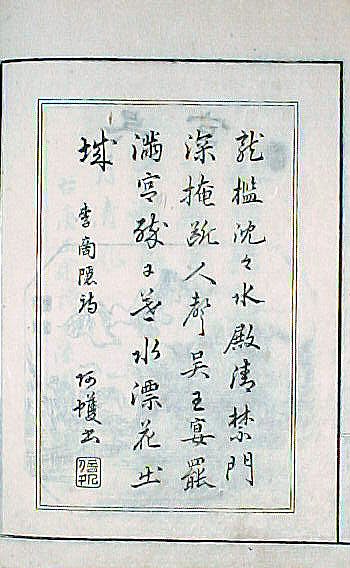 龍檻沈々水殿清禁門
深掩斷人聲吳王宴罷
滿宮醉日暮水漂花出
城
李商隱詩
阿雙書